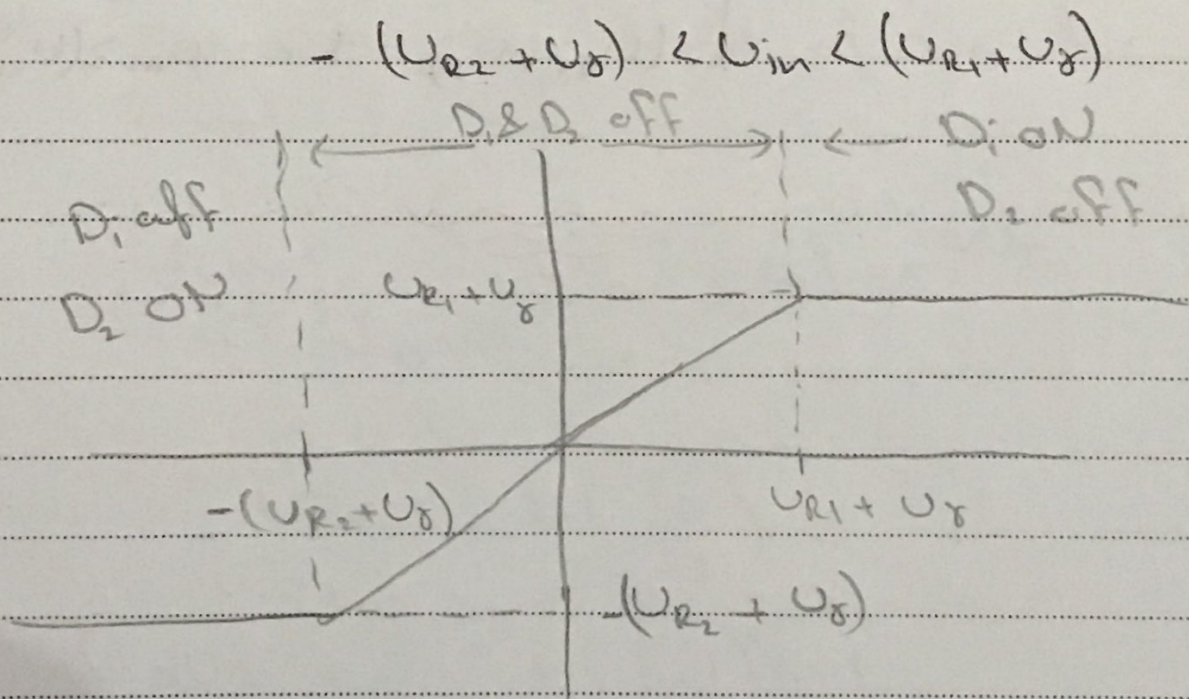 - (U_R2 + U_γ) < U_in < (U_R1 + U_γ)
D1 & D2 off
D1 ON
D1 off
D2 off
D2 ON
U_R1 + U_γ
-(U_R2 + U_γ)
U_R1 + U_γ
-(U_R2 + U_γ)